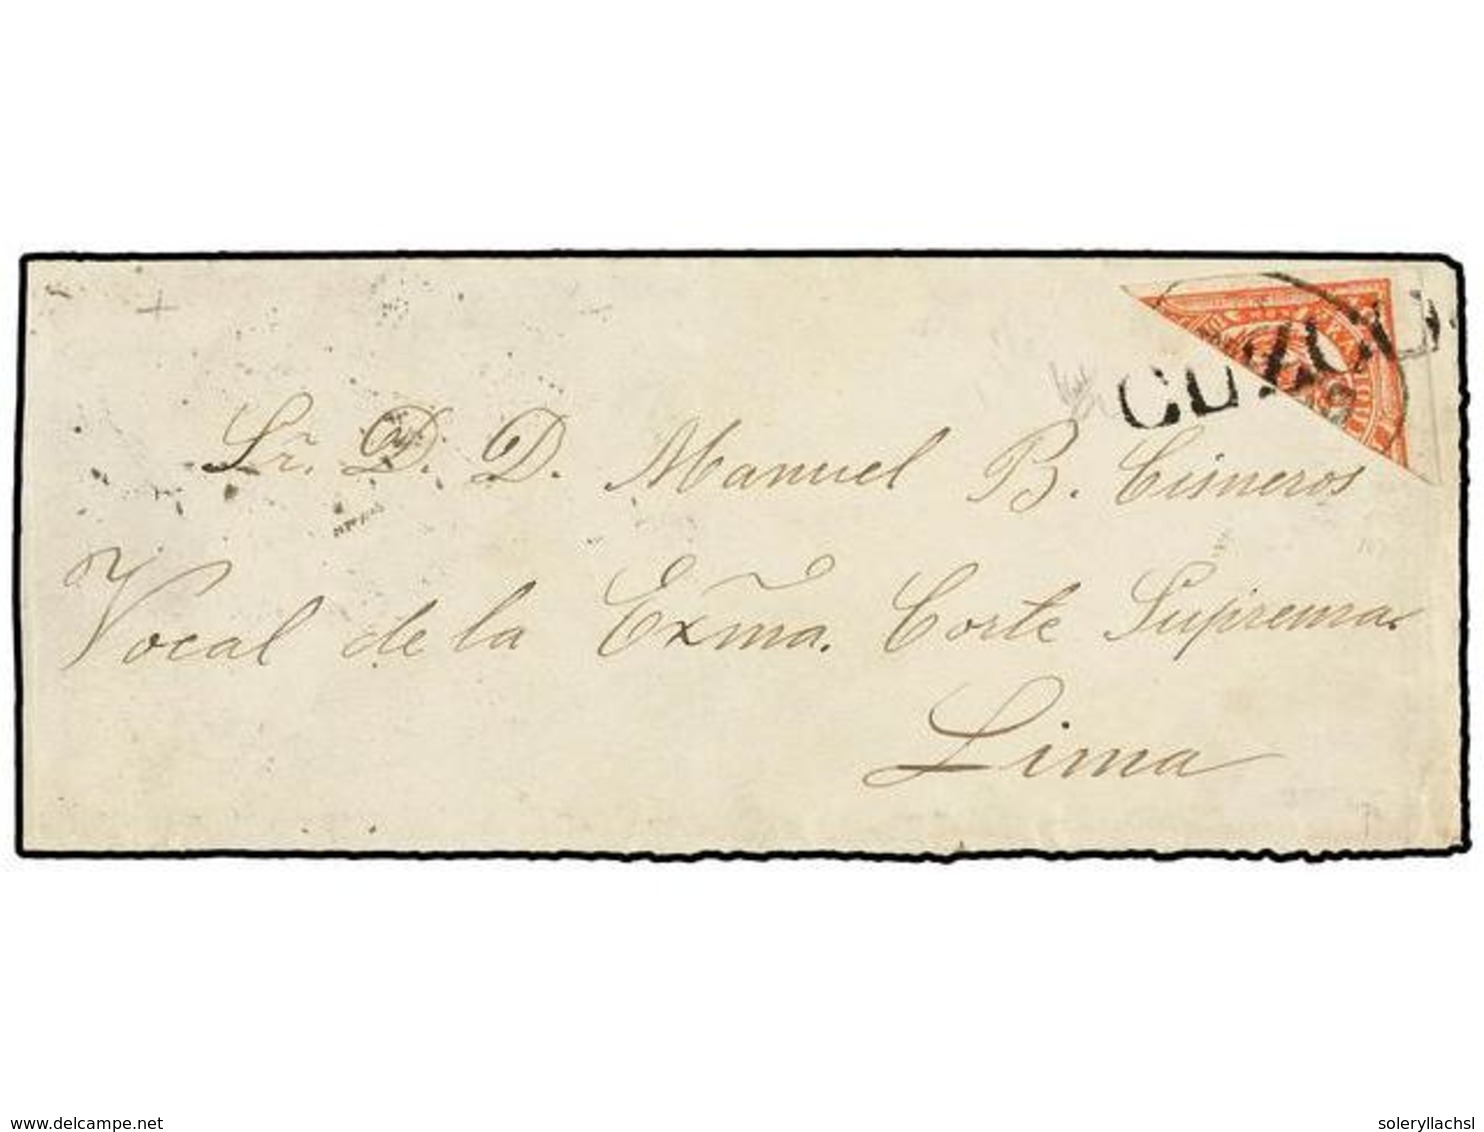 CUZCO
Sr. D. D. Manuel B. Cisneros
Vocal de la Exm̃a. Corte Suprema.
Lima
www.delcampe.net
soleryllachsl